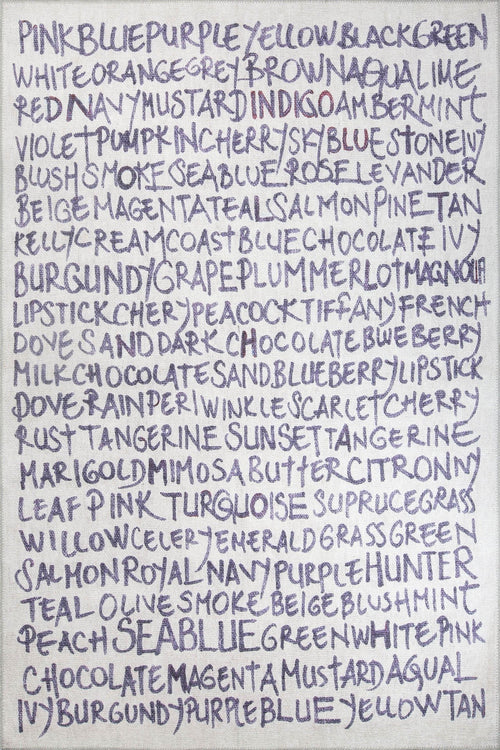 PINKBLUEPURPLEYELLOWBLACKGREEN
WHITEORANGEGREYBROWNAQUALIME
REDNAVYMUSTARDINDIGOAMBERMINT
VIOLETPUMPKINCHERRYSKYBLUESTONEIVY
BLUSHSMOKESEABLUEROSELEVANDER
BEIGEMAGENTATEALSALMONPINETAN
KELLYCREAMCOASTBLUECHOCOLATE IVY
BURGUNDYGRAPEPLUMMERLOTMAGNOLIA
LIPSTICKCHERYPEACOCKTIFFANYFRENCH
DOVESANDDARKCHOCOLATEBLUEBERRY
MILKCHOCOLATESANDBLUEBERRYLIPSTICK
DOVERAINPERIWINKLESCARLETCHERRY
RUSTTANGERINE SUNSETTANGERINE
MARIGOLDMIMOSABUTTERCITRONNY
LEAF PINK TURQUOISE SUPRUCEGRASS
WILLOWCELERYEMERALDGRASSGREEN
SALMONROYALNAVYPURPLEHUNTER
TEAL OLIVESMOKEBEIGEBLUSHMINT
PEACH SEABLUEGREENWHITEPINK
CHOCOLATEMAGENTAMUSTARDAQUAL
IVYBURGUNDYPURPLEBLUE YELLOWTAN